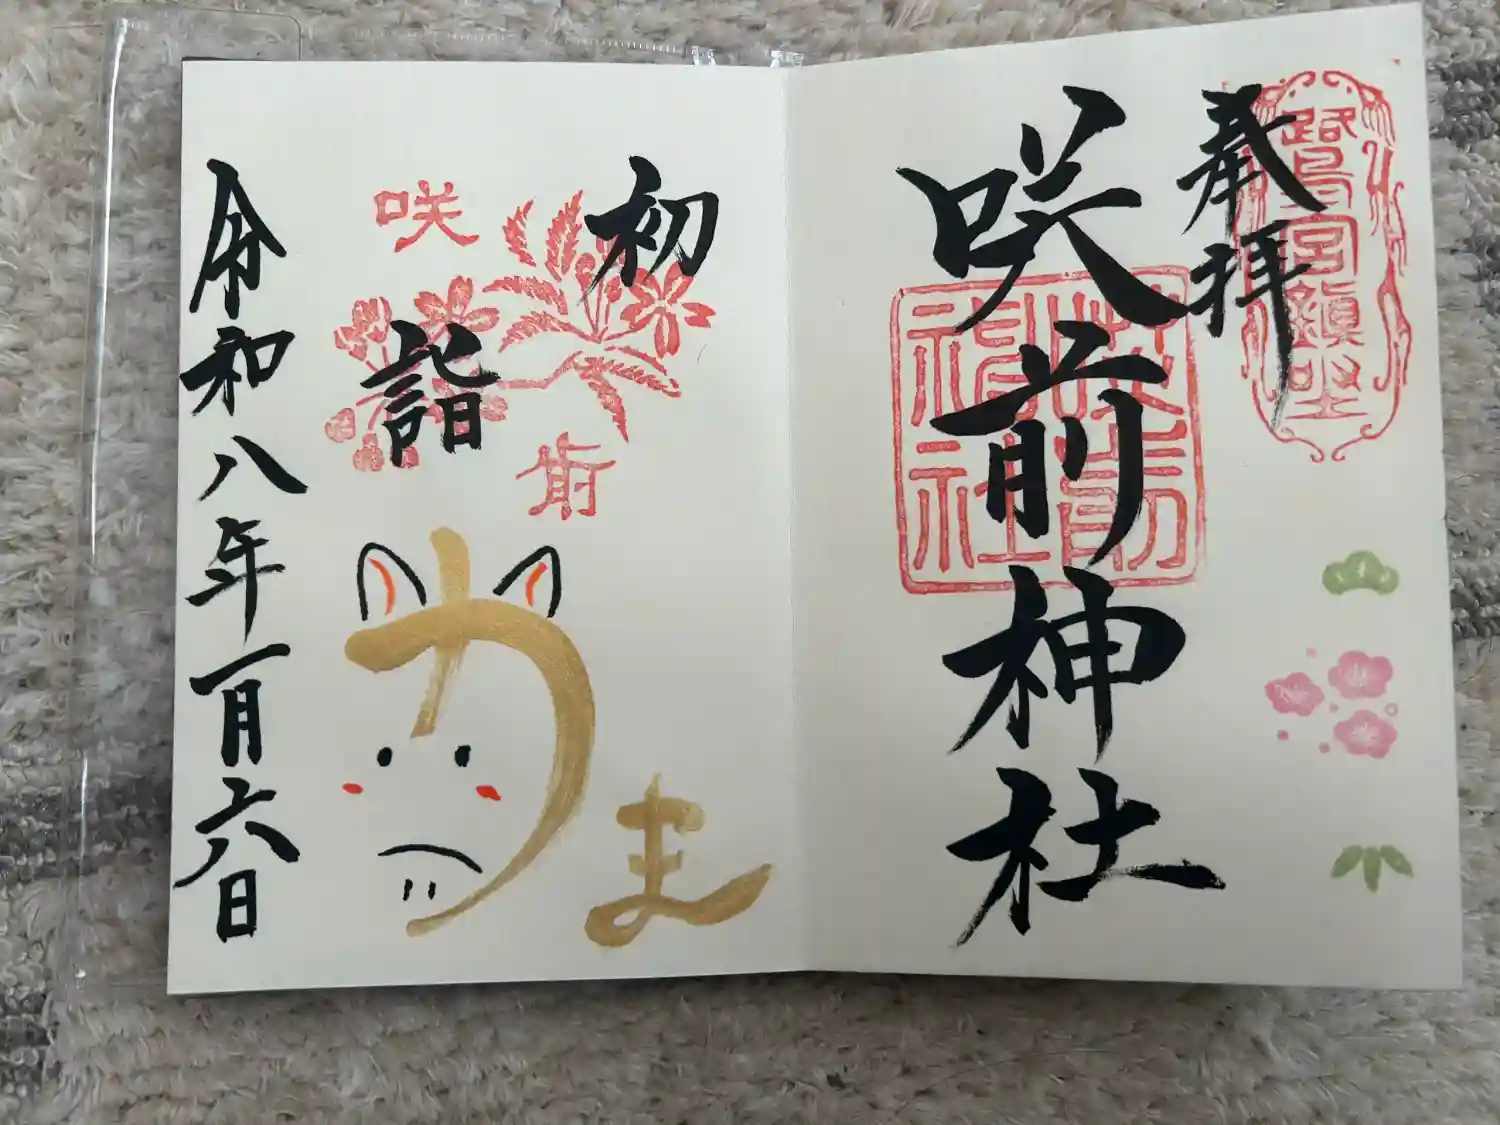 鷺宮鎮坐
奉拝
咲前神社
咲前
神社
初詣
咲
前
うま
令和八年一月六日